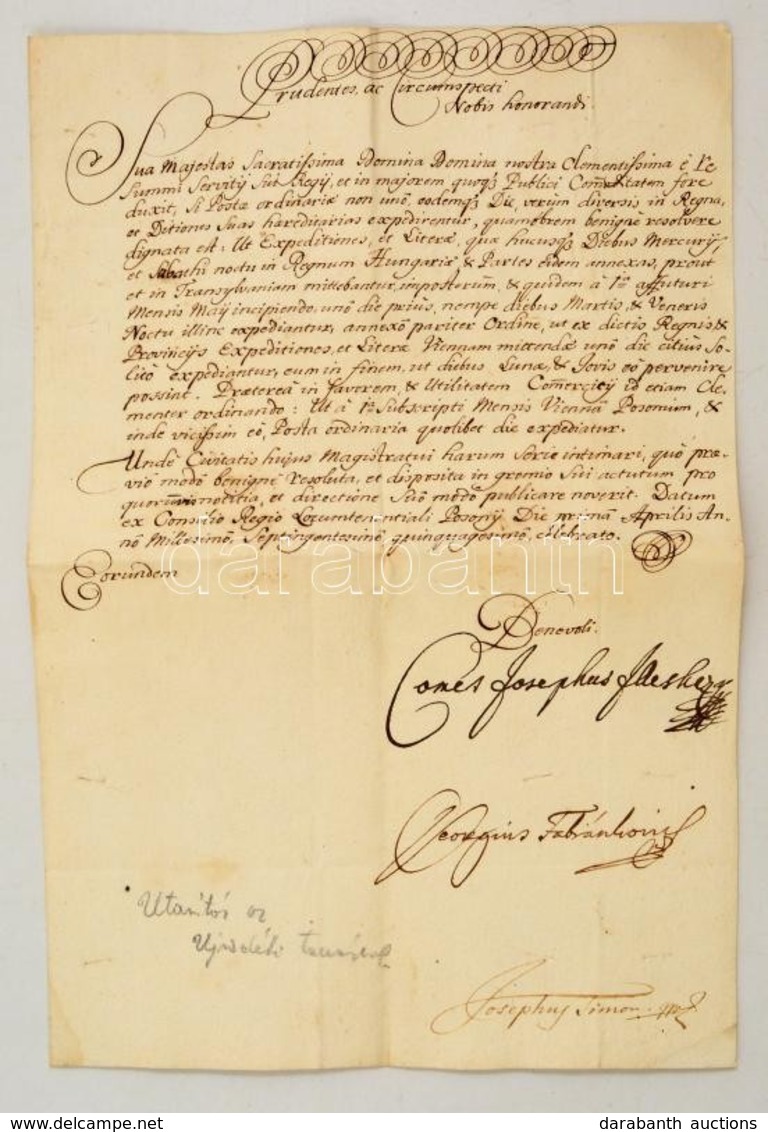 Prudentes, ac Circumspecti
Nobis honorandi.
Sua Majestas Sacratissima Domina Domina nostra Clementissima è re
Summi Servitÿ Sui Regÿ, et in majorem quoq3 Publici Comoditatem fore
duxit, Si Postæ ordinariæ non unô, eodemq3 Die, verùm diversis in Regna,
et Ditiones Suas hæreditarias expedirentur, quamobrem benignè resolvere
dignata est: Ut Expeditiones, et Literæ, quæ hucusq3 Diebus Mercurÿ,
et Sabathi noctu in Regnum Hungariæ & Partes eidem annexas, prout
et in Transylvaniam mittebantur, imposterum, & quidem à 1ma affuturi
Mensis Maÿ incipiendo, unô die priùs, nempe diebus Martis, & Veneris
Noctu illinc expediantur, annexô pariter Ordine, ut ex dictis Regnis, &
Provincÿs Expeditiones, et Literæ Viennam mittendæ unô die citiùs So-
litô expediantur, eum in finem, ut diebus Lunæ, & Jovis eô pervenire
possint. Præterea in favorem, & Utilitatem Comercij id etiam Cle-
menter ordinando: Ut à 1ma Subscripti Mensis Viennâ Posonium, &
inde vicissim eò, Posta ordinaria quolibet die expediatur.
Unde Civitatis hujus Magistratui harum Serie intimari, quô præ-
viô modô benignè resoluta, et disposita in gremio Sui actutum pro
quorumvis notitia, et directione Suô modô publicare noverit. Datum
ex Consilio Regio Locumtenentiali Posonÿ Die primâ Aprilis An-
nô Millesimô, Septingentesimô quinquagesimô, celebrato.
Eorundem
Benevoli.
Comes Josephus Illesházy
Georgius Fabiánkovics
Josephus Timon
Utasítás az
Ujvidéki
darabanth
www.delcampe.net
darabanth auctions